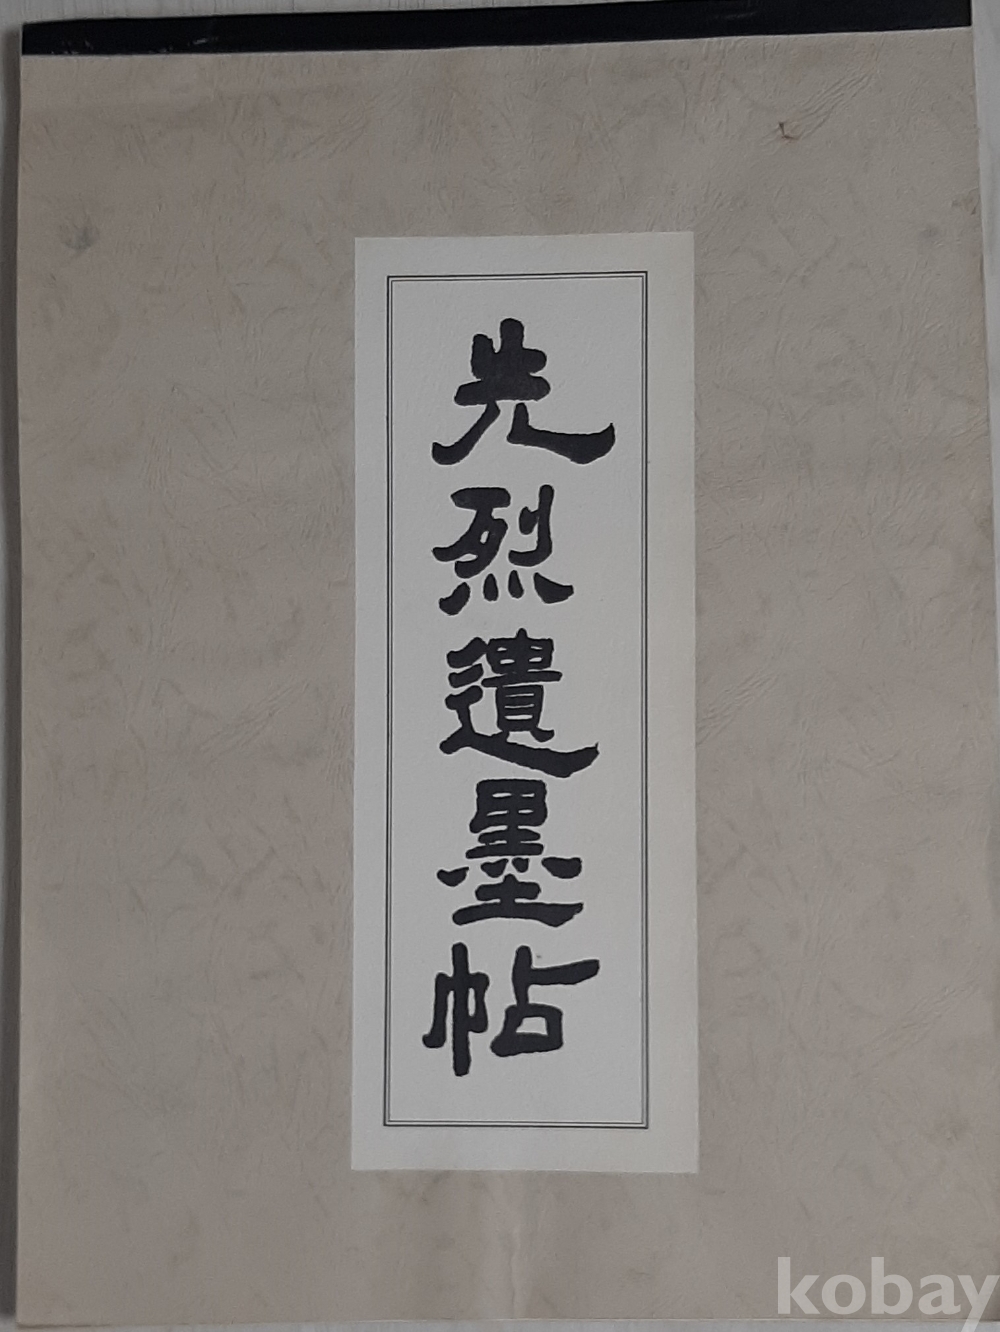 先烈遺墨帖
kobay